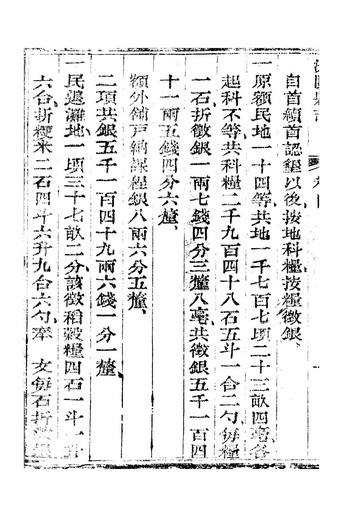 自首續首認墾以後按地科糧按糧徵銀
一原額民地一十四等共地一千七百七頃二十三畝四毫各
起科不等共科糧二千九百四十八石五斗一合二勺每糧
一石折徵銀一兩七錢四分三釐八毫共徵銀五千一百四
十一兩五錢四分六釐
額外舖戸納課程銀八兩六分五釐
二項共銀五千一百四十九兩六錢一分一釐
一民退灘地一頃三十七畝二分該徵稻穀糧四石一斗一升
六合折粳米二石四斗六升九合六勺奉 文每石折